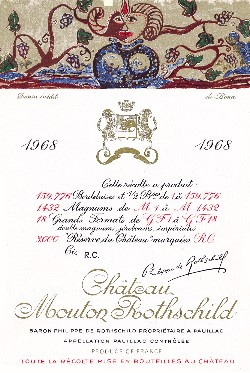 Dessin inédit de Bona
1968 1968
Cette récolte a produit :
159.776 Bordelaises et ½ Btes de 1 à 159.776
1432 Magnums de M 1 à M 1432
18 Grands Formats de G F 1 à G F 18
double magnums, jéroboams, impériales
3000 "Réserve du Château" marquées R.C.
Ci: R.C.
Philippe de Rothschild
Château
Mouton Rothschild
BARON PHILIPPE DE ROTHSCHILD PROPRIÉTAIRE A PAUILLAC
APPELLATION PAUILLAC CONTRÔLÉE
PRODUCE OF FRANCE
TOUTE LA RÉCOLTE MISE EN BOUTEILLES AU CHÂTEAU